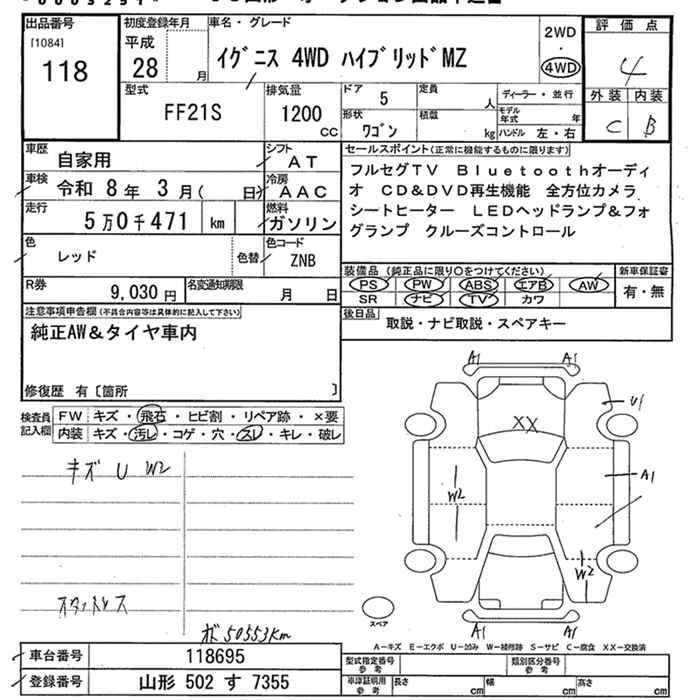 出品番号 初度登録年月 車名・グレード 2WD 評価点
[1084] 平成 ・
118 28 月 イグニス 4WD ハイブリッドMZ 4WD 4
型式 排気量 ドア 5 定員 人 ディーラー・並行 外装 内装
FF21S 1200 cc 形状 ワゴン 積載 kg モデル年式 年 C B
ハンドル 左・右
車歴 自家用 シフト AT セールスポイント(正常に機能するものに限ります)
車検 令和 8年 3月( 日) 冷房 AAC フルセグTV Bluetoothオーディ
オ CD&DVD再生機能 全方位カメラ
走行 5万0千471 km 燃料 ガソリン シートヒーター LEDヘッドランプ&フォ
グランプ クルーズコントロール
色 レッド 色替 色コード ZNB
装備品(純正品に限り○をつけてください) 新車保証書
R券 9,030円 名変通知期限 月 日 PS PW ABS エアB AW 有・無
SR ナビ TV カワ
注意事項申告欄(不具合内容等は具体的に記入して下さい) 後日品 取説・ナビ取説・スペアキー
純正AW&タイヤ車内
修復歴 有〔箇所 〕
検査員記入欄 FW キズ・飛石・ヒビ割・リペア跡・×要
内装 キズ・汚レ・コゲ・穴・スレ・キレ・破レ
A1 A1
U1
XX
キズ U W2
W2 A1
W2
スペア
A1 A1
ボ50553Km
A−キズ E−エクボ U−凹み W−補修跡 S−サビ C−腐食 XX−交換済
車台番号 118695 型式指定番号 参考 類別区分番号 参考
登録番号 山形 502 す 7355 車庫証明用 参考 長さ cm 幅 cm 高さ cm